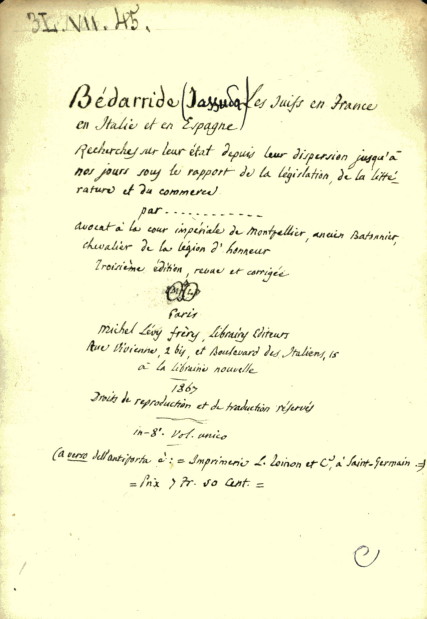 3L. VII. 45.
Bédarride (Jassuda) Les Juifs en France
en Italie et en Espagne
Recherches sur leur état depuis leur dispersion jusqu'à
nos jours sous le rapport de la législation, de la litté-
rature et du commerce
par - - - - - - - - - - - -
avocat à la cour impériale de Montpellier, ancien Batonnier,
chevalier de la légion d'honneur
Troisième édition, revue et corrigée
Paris
Michel Lévy frères, Libraires Editeurs
Rue Vivienne, 2 bis, et Boulevard des Italiens, 15
à la librairie nouvelle
1867
Droits de reproduction et de traduction réservés
in-8°. Vol. unico
(a verso dell'antiporta è: = Imprimerie L. Toinon et Cie, à Saint-Germain =)
= Prix 7 Fr. 50 Cent. =